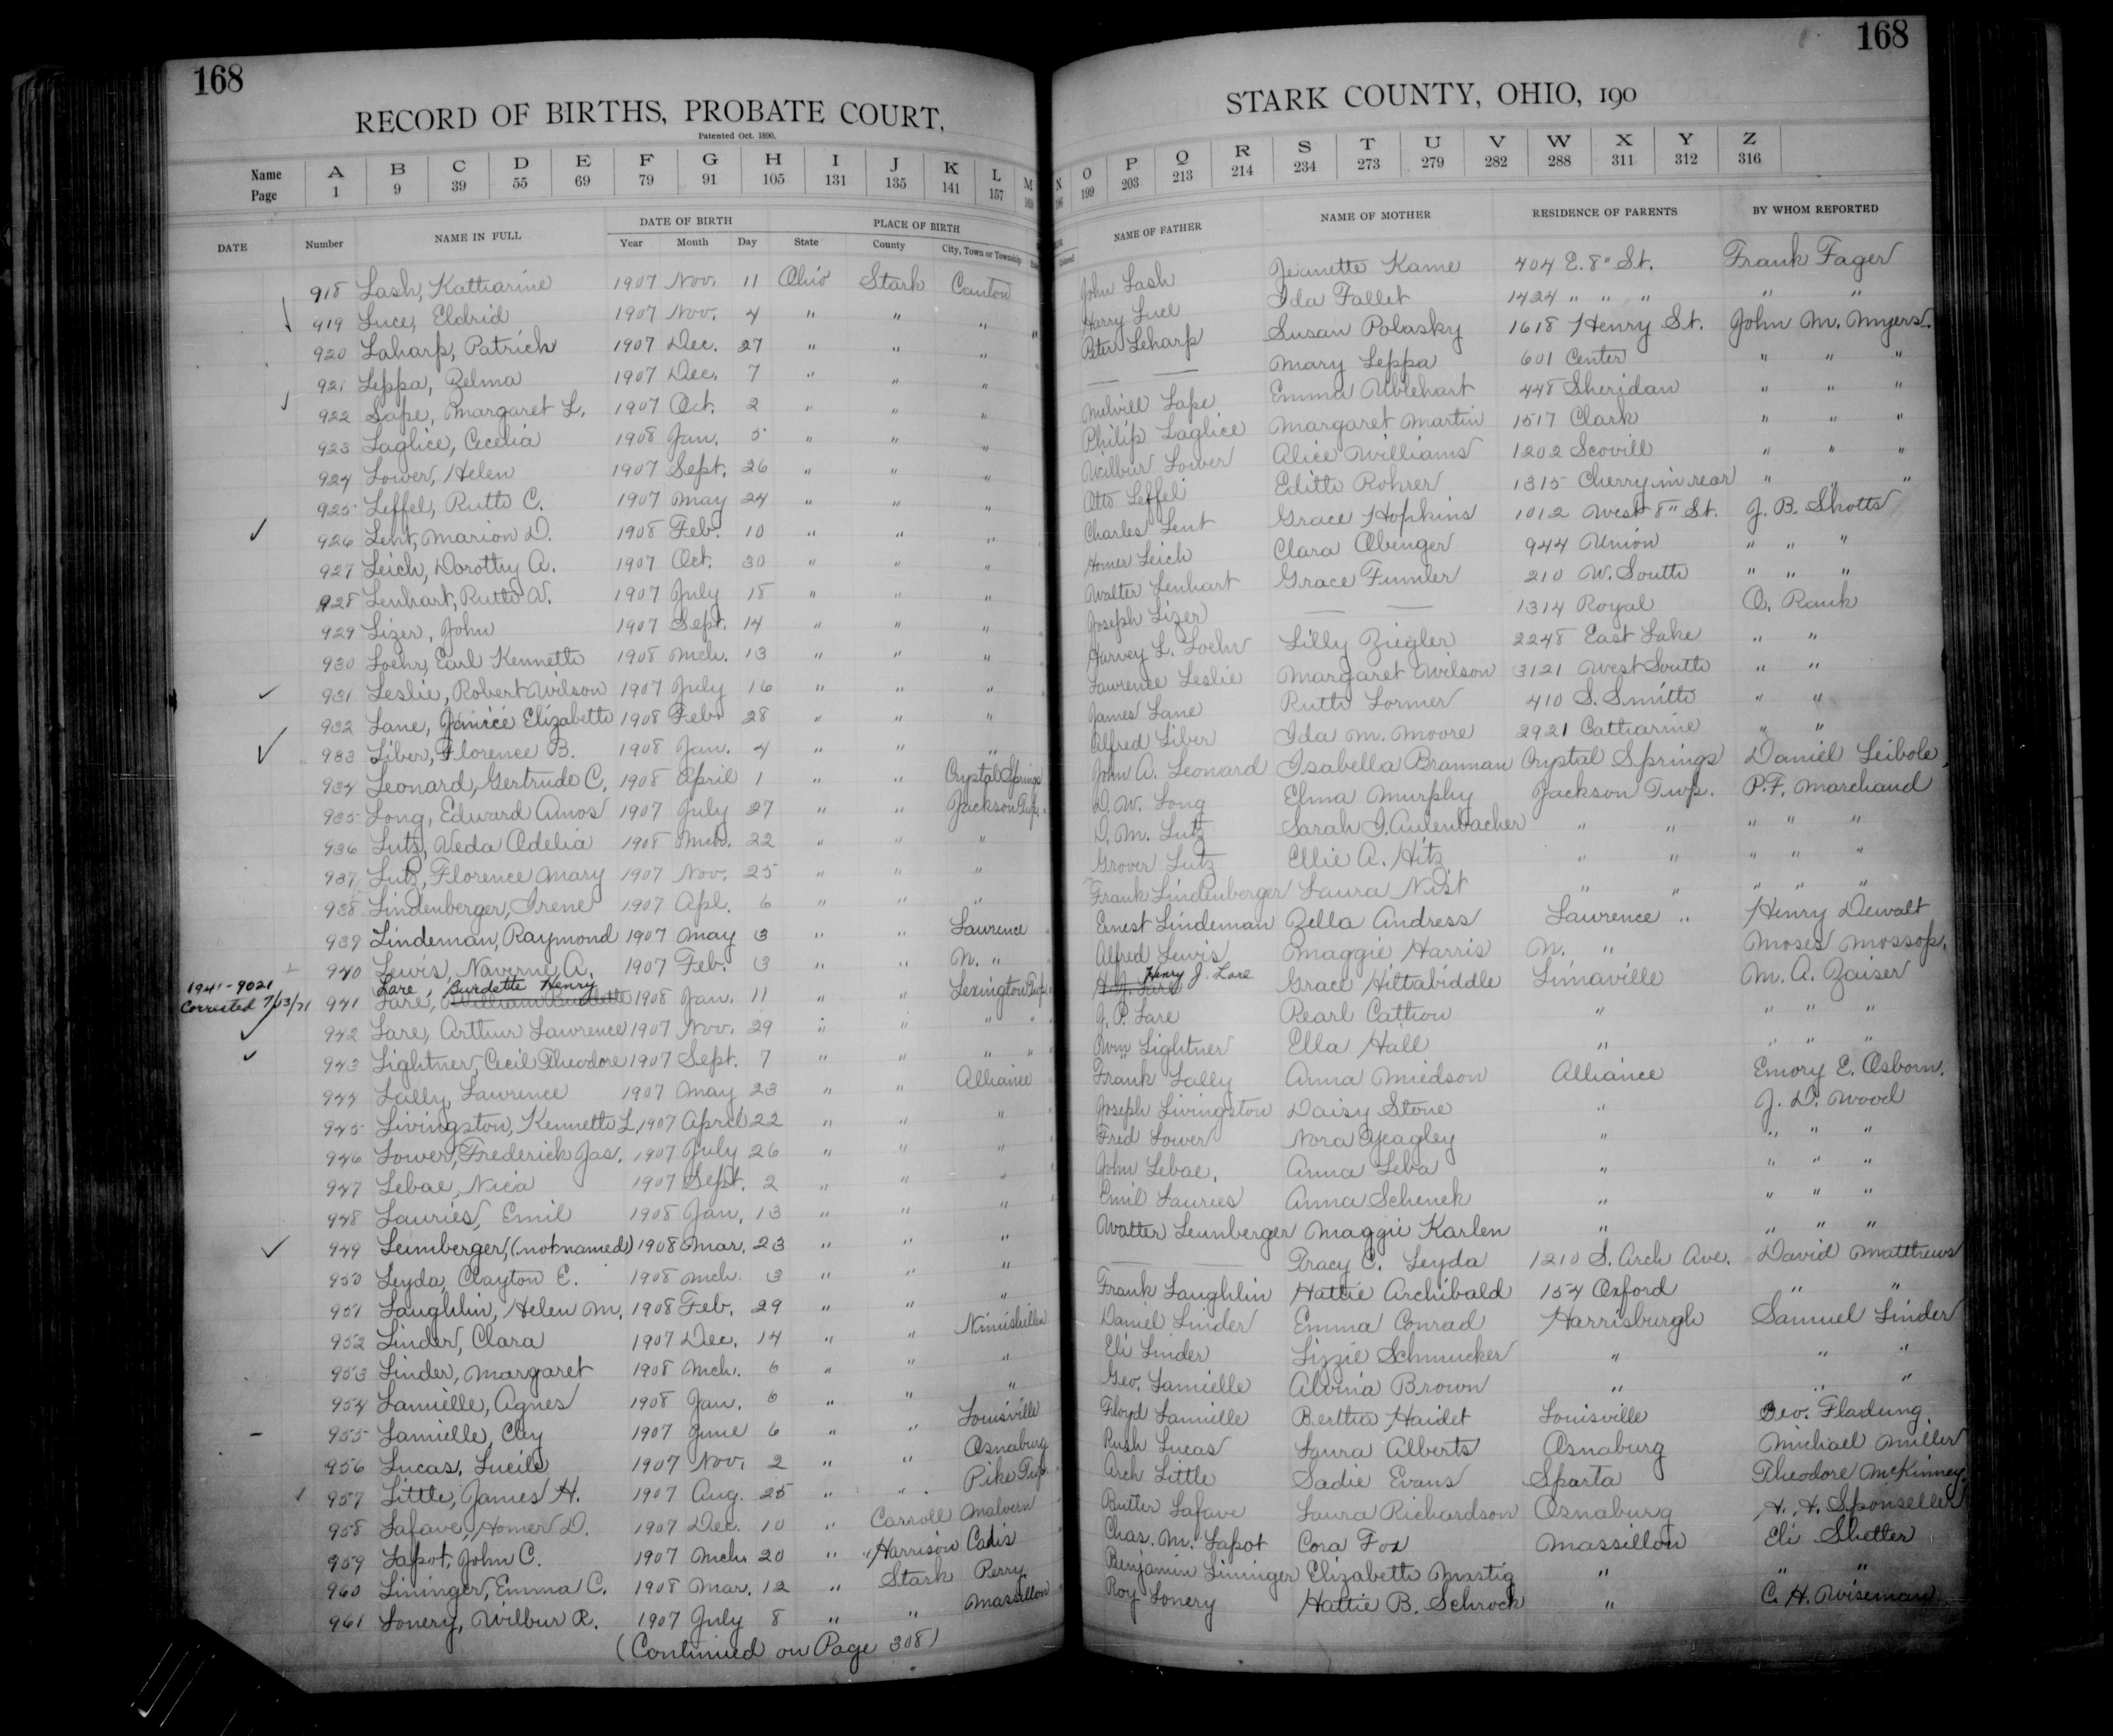 168
RECORD OF BIRTHS, PROBATE COURT,
Patented Oct. 1890.
Name A B C D E F G H I J K L M
Page 1 9 39 55 69 79 91 105 131 135 141 157
DATE Number NAME IN FULL DATE OF BIRTH PLACE OF BIRTH
Year Month Day State County City, Town or Township
918 Lash, Katharine 1907 Nov. 11 Ohio Stark Canton
919 Luce, Eldrid 1907 Nov. 4 " " "
920 Laharp, Patrick 1907 Dec. 27 " " "
921 Leppa, Zelma 1907 Dec. 7 " " "
922 Lape, Margaret L. 1907 Oct. 2 " " "
923 Laglice, Cecelia 1908 Jan. 5 " " "
924 Lower, Helen 1907 Sept. 26 " " "
925 Leffel, Ruth C. 1907 May 24 " " "
926 Lent, Marion D. 1908 Feb. 10 " " "
927 Leich, Dorothy A. 1907 Oct. 30 " " "
928 Lenhart, Ruth V. 1907 July 18 " " "
929 Lizer, John 1907 Sept. 14 " " "
930 Loehr, Earl Kenneth 1908 Mch. 13 " " "
931 Leslie, Robert Wilson 1907 July 16 " " "
932 Lane, Janice Elizabeth 1908 Feb. 28 " " "
933 Liber, Florence B. 1908 Jan. 4 " " "
934 Leonard, Gertrude C. 1908 April 1 " " Crystal Springs
935 Long, Edward Amos 1907 July 27 " " Jackson Twp.
936 Lutz, Veda Adelia 1908 Mch. 22 " " "
937 Lutz, Florence Mary 1907 Nov. 25 " " "
938 Lindenberger, Irene 1907 Apl. 6 " " "
939 Lindeman, Raymond 1907 May 3 " " Lawrence
940 Lewis, Naverne A. 1907 Feb. 3 " " N. "
1941-9021 Lare, Burdette Henry
Corrected 7/13/71 941 Lare, William Burdette 1908 Jan. 11 " " Lexington Twp.
942 Lare, Arthur Lawrence 1907 Nov. 29 " " " "
943 Lightner, Cecil Theodore 1907 Sept. 7 " " " "
944 Lally, Lawrence 1907 May 23 " " Alliance
945 Livingston, Kenneth L. 1907 April 22 " " "
946 Lower, Frederick Jas. 1907 July 26 " " "
947 Lebae, Nica 1907 Sept. 2 " " "
948 Lauries, Emil 1908 Jan. 13 " " "
949 Leimberger, (not named) 1908 Mar. 23 " " "
950 Leyda, Clayton E. 1908 Mch. 3 " " "
951 Laughlin, Helen M. 1908 Feb. 29 " " "
952 Linder, Clara 1907 Dec. 14 " " Nimishillen
953 Linder, Margaret 1908 Mch. 6 " " "
954 Lamielle, Agnes 1908 Jan. 6 " " "
955 Lamielle, Clay 1907 June 6 " " Louisville
956 Lucas, Lucile 1907 Nov. 2 " " Osnaburg
957 Little, James H. 1907 Aug. 25 " " Pike Twp.
958 Lafave, Homer D. 1907 Dec. 10 " Carroll Malvern
959 Lapot, John C. 1907 Mch. 20 " Harrison Cadis
960 Lininger, Emma C. 1908 Mar. 12 " Stark Perry
961 Lonery, Wilbur R. 1907 July 8 " " Massillon
(Continued on Page 308)
168
STARK COUNTY, OHIO, 190
N O P Q R S T U V W X Y Z
196 199 203 213 214 234 273 279 282 288 311 312 316
Colored NAME OF FATHER NAME OF MOTHER RESIDENCE OF PARENTS BY WHOM REPORTED
John Lash Jeanette Kame 404 E. 8" St. Frank Fager
Harry Luce Ida Fallet 1424 " " " " "
Peter Leharp Susan Polasky 1618 Henry St. John M. Myers.
— — Mary Leppa 601 Center " " "
Melvill Lape Emma Ublehart 448 Sheridan " " "
Philip Laglice Margaret Martin 1517 Clark " " "
Wilbur Lower Alice Williams 1202 Scovill " " "
Otto Leffel Edith Rohrer 1315 Cherry in rear " " "
Charles Lent Grace Hopkins 1012 West 8" St. J. B. Shotts
Homer Leich Clara Obenger 944 Union " " "
Walter Lenhart Grace Fumler 210 W. South " " "
Joseph Lizer — — 1314 Royal O. Rank
Harvey L. Loehr Lilly Ziegler 2248 East Lake " "
Lawrence Leslie Margaret Wilson 3121 West South " "
James Lane Ruth Lormer 410 S. Smith " "
Alfred Liber Ida M. Moore 2921 Catharine " "
John A. Leonard Isabella Brannan Crystal Springs Daniel Leibole,
D. W. Long Elma Murphy Jackson Twp. P. F. Marchand
D. M. Lutz Sarah J. Aulenbacher " " " " "
Grover Lutz Ellie A. Hitz " " " " "
Frank Lindenberger Laura Nist " " " " "
Ernest Lindeman Zella Andress Lawrence " Henry Dewalt
Alfred Lewis Maggie Harris N. " Moses Mossop.
Henry J. Lare
H. J. Lare Grace Hittabiddle Limaville M. A. Zaiser
J. P. Lare Pearl Cattron " " " "
Wm Lightner Ella Hall " " " "
Frank Lally Anna Miedson Alliance Emory E. Osborn.
Joseph Livingston Daisy Stone " J. D. Wood
Fred Lower Nora Yeagley " " " "
John Lebae, Anna Leba " " " "
Emil Lauries Anna Schenek " " " "
Walter Leimberger Maggie Karlen " " " "
— — Tracy C. Leyda 1210 S. Arch Ave. David Matthews
Frank Laughlin Hattie Archibald 154 Oxford " "
Daniel Linder Emma Conrad Harrisburgh Samuel Linder
Eli Linder Lizzie Schmucker " " "
Geo. Lamielle Alvina Brown " " "
Floyd Lamielle Bertha Haidet Louisville Geo. Fladung.
Rush Lucas Laura Alberts Osnaburg Michael Miller
Arch Little Sadie Evans Sparta Theodore McKinney.
Butler Lafave Laura Richardson Osnaburg H. H. Sponseller
Chas. M. Lapot Cora Fox Massillon Eli Shetter
Benjamin Lininger Elizabeth Mastig " " "
Roy Lonery Hattie B. Schrock " C. H. Wiseman